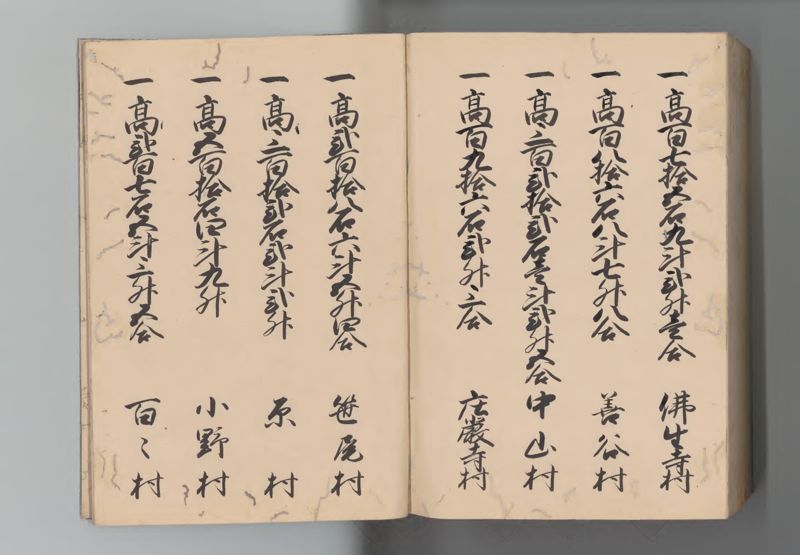 一高百七拾五石九斗弐升壱合 佛生寺村
一高百八拾六石八斗七升八合 善谷村
一高三百弐拾弐石壱斗弐升五合 中山村
一高百九拾六石弐升三合 庄嚴寺村
一高弐百拾八石六斗五升四合 笹尾村
一高三百拾弐石弐斗弐升 原村
一高五百拾石四斗九升 小野村
一高弐百七石五斗三升五合 百々村